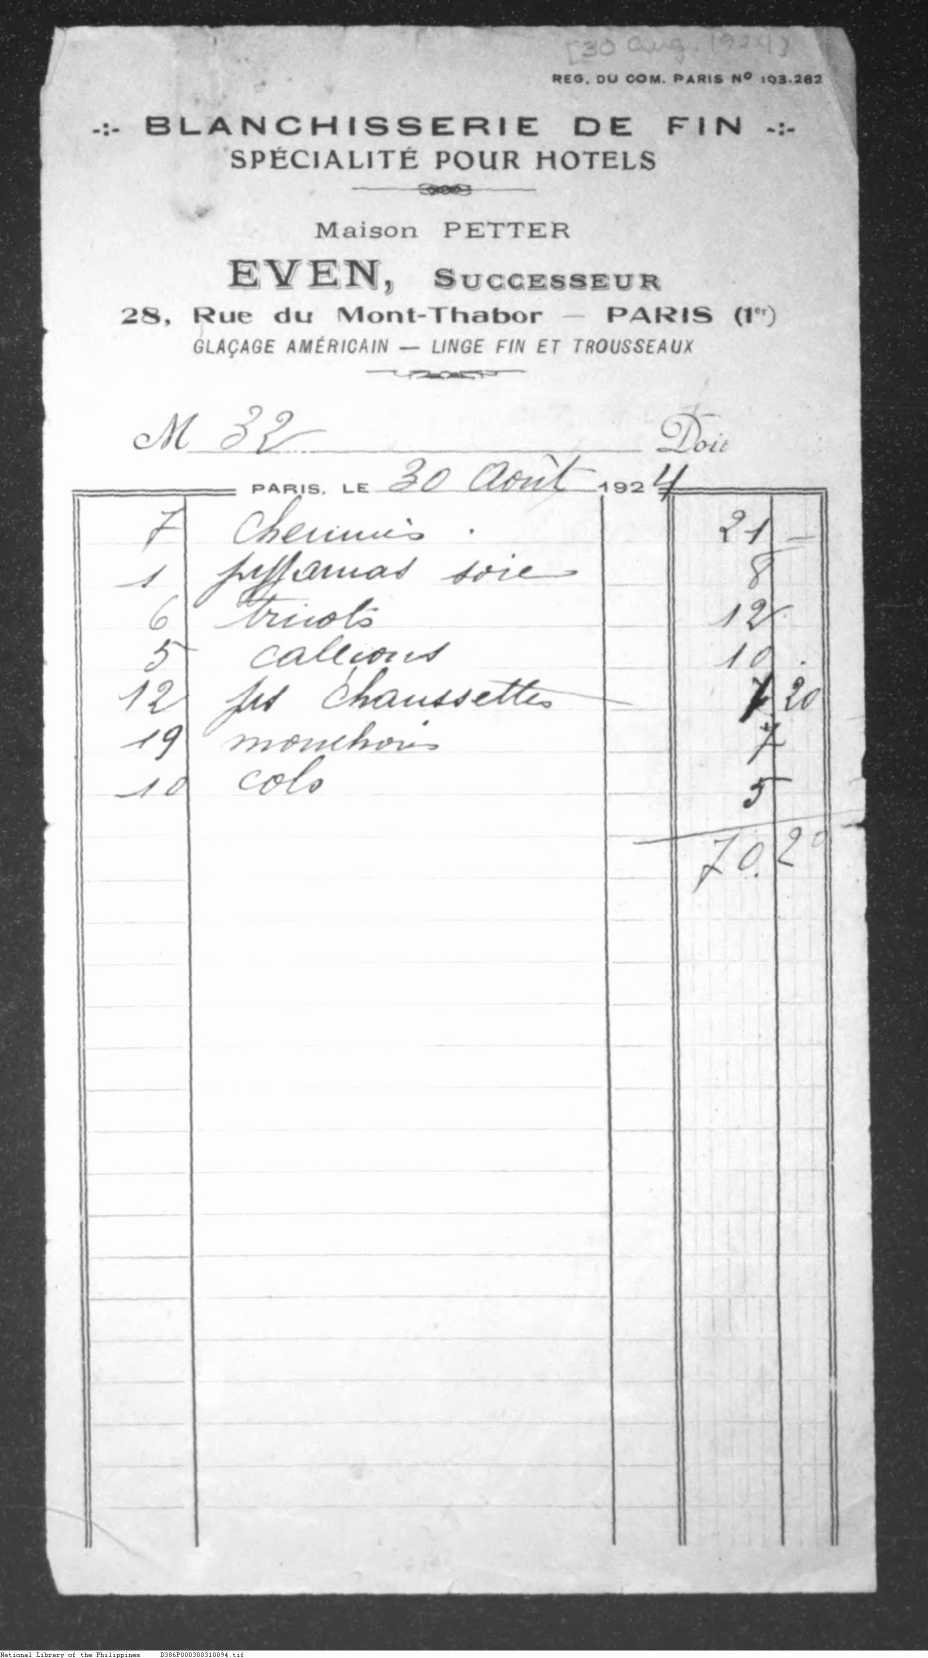 [30 Aug. 1924]
REG. DU COM. PARIS Nº 193.262
-:- BLANCHISSERIE DE FIN -:-
SPÉCIALITÉ POUR HOTELS
Maison PETTER
EVEN, SUCCESSEUR
28, Rue du Mont-Thabor — PARIS (1er)
GLAÇAGE AMÉRICAIN — LINGE FIN ET TROUSSEAUX
M 32 Doit
PARIS, LE 30 Août 1924
7 chemises 21 —
1 pyjamas soie 8
6 tricots 12
5 caleçons 10
12 prs chaussettes 7 20
19 mouchoirs 7
10 cols 5
70.20
National Library of the Philippines D386P000300310094.tif